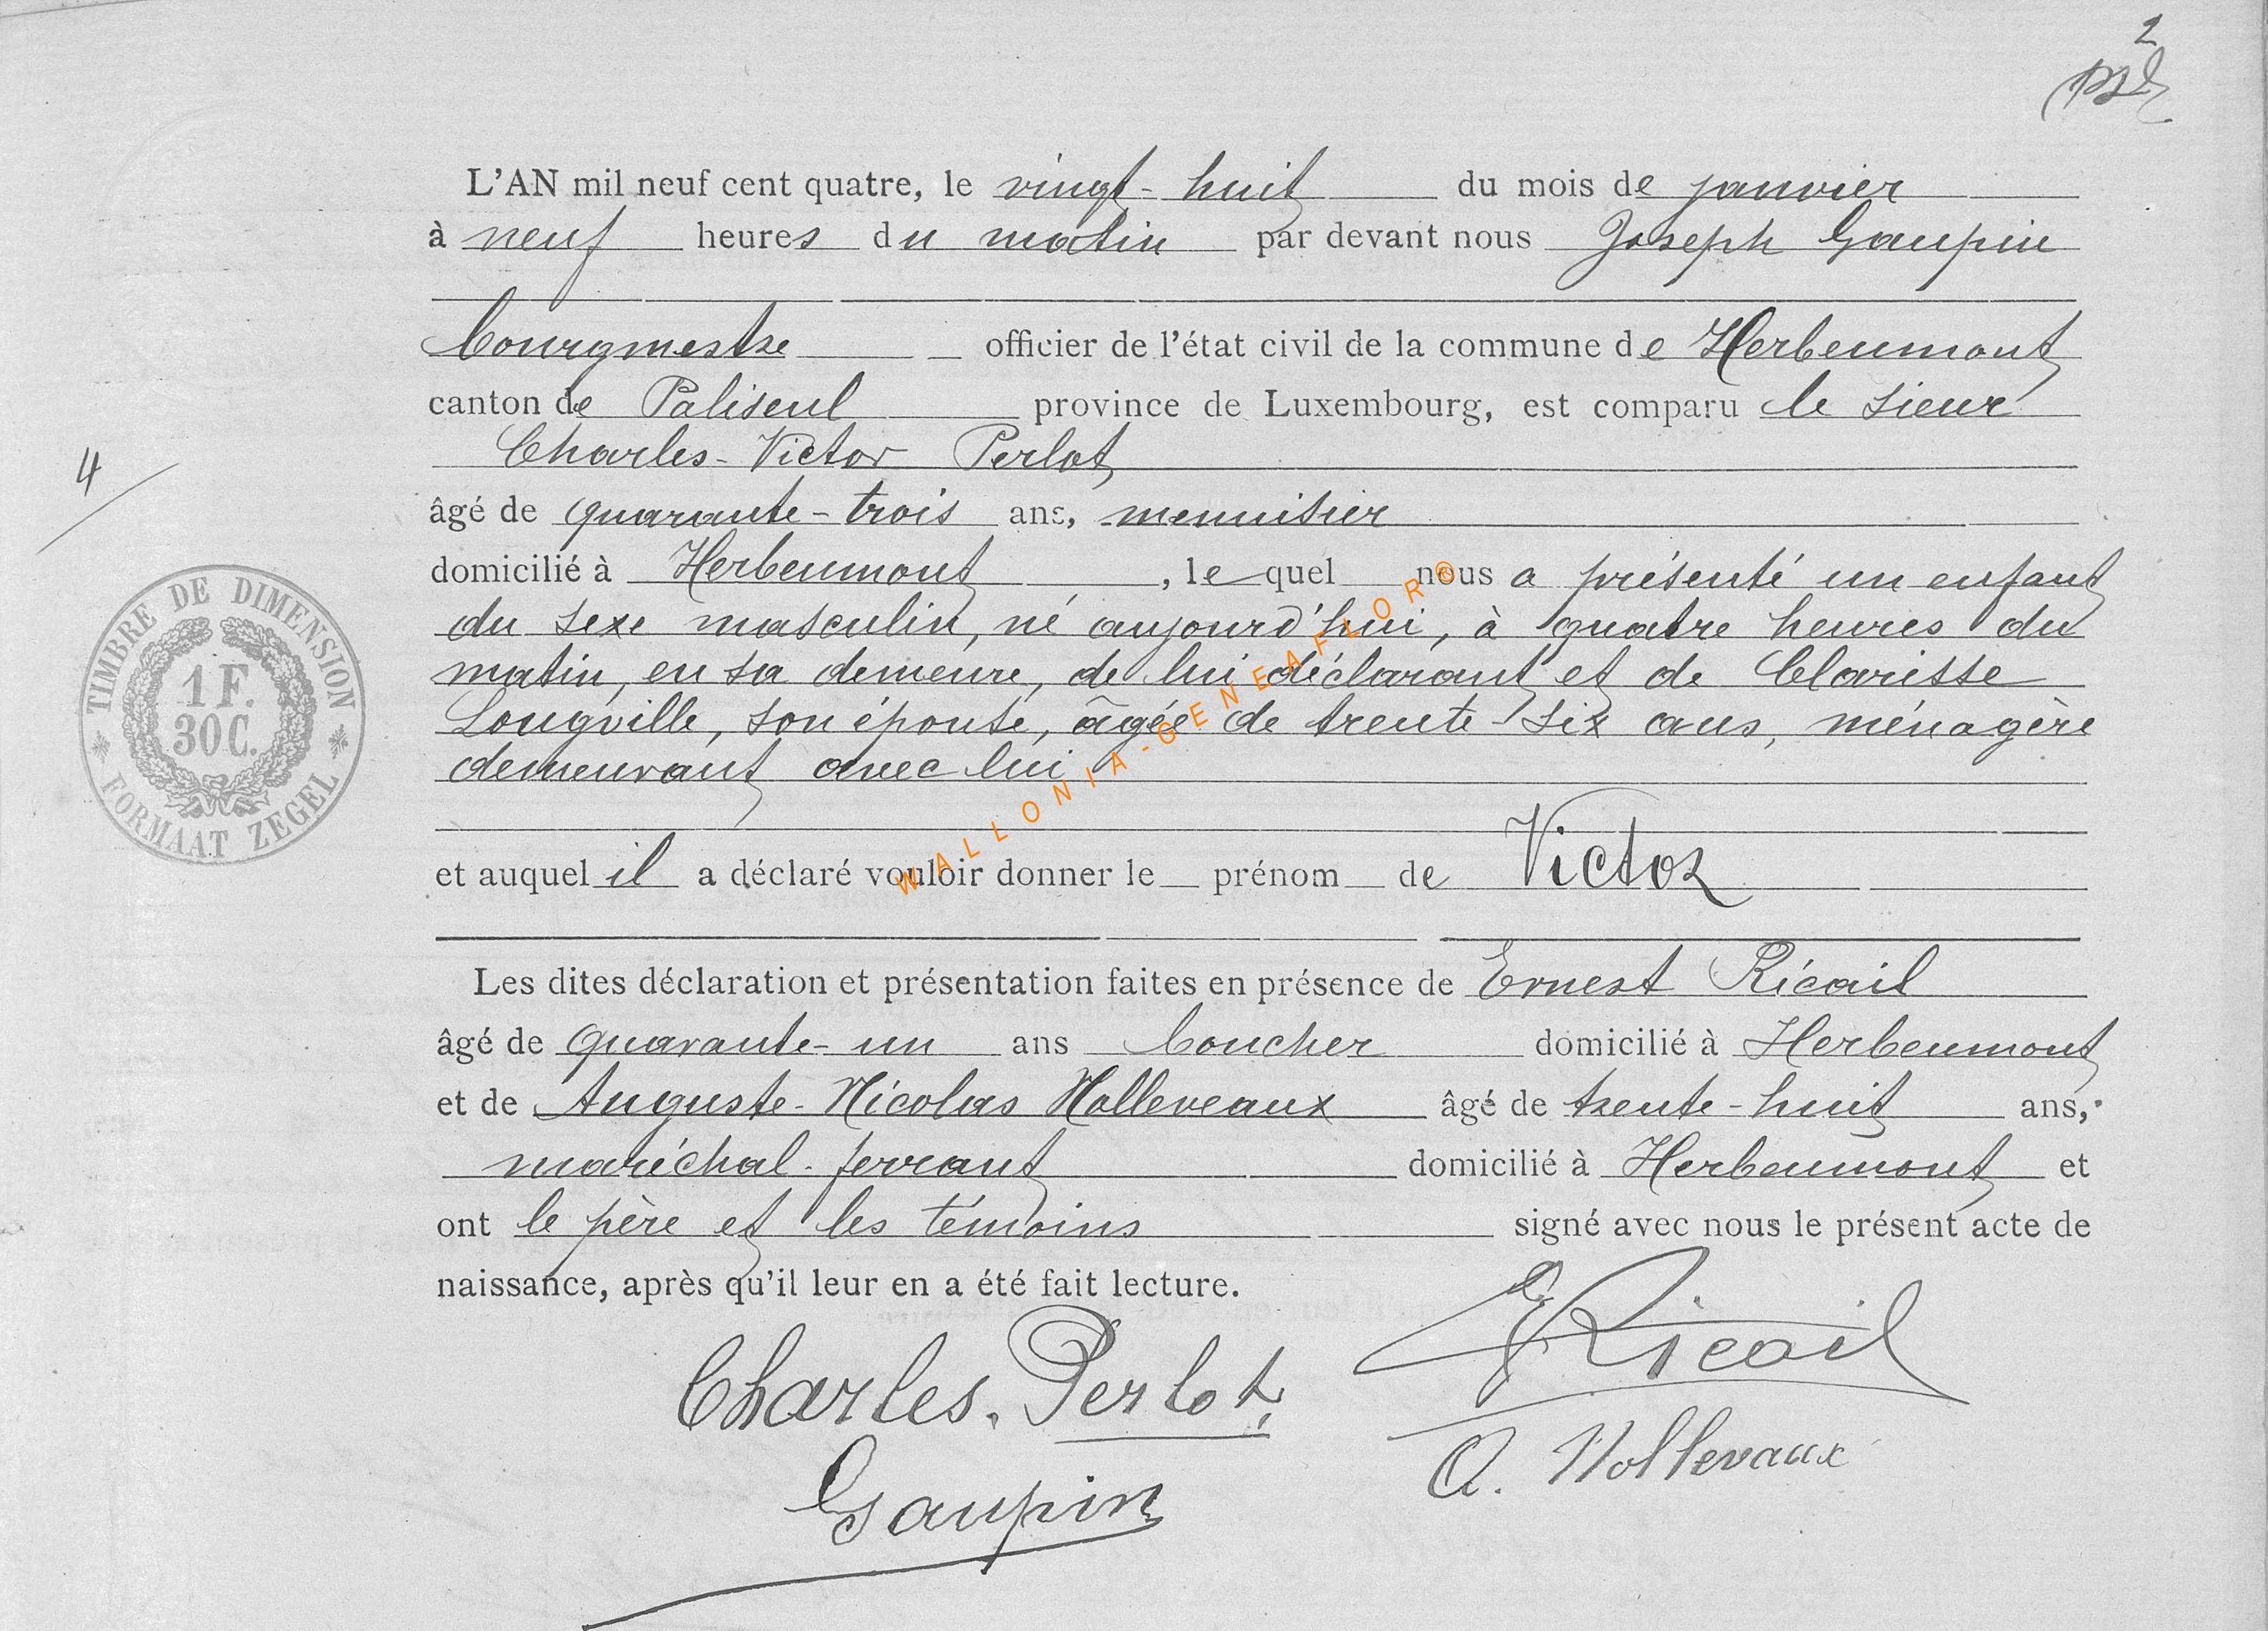 2
L'AN mil neuf cent quatre, le vingt-huit du mois de janvier
à neuf heures du matin par devant nous Joseph Gaupin
bourgmestre officier de l'état civil de la commune de Herbeumont
canton de Paliseul province de Luxembourg, est comparu le sieur
Charles-Victor Perlot
4
âgé de quarante-trois ans, menuisier
domicilié à Herbeumont, lequel nous a présenté un enfant
du sexe masculin, né aujourd'hui, à quatre heures du
matin, en sa demeure, de lui déclarant et de Clarisse
Longville, son épouse, âgée de trente-six ans, ménagère
demeurant avec lui
TIMBRE DE DIMENSION
1 F.
30 C.
FORMAAT ZEGEL
WALLONIA-GENEAFLOR®
et auquel il a déclaré vouloir donner le prénom de Victor
Les dites déclaration et présentation faites en présence de Ernest Ricail
âgé de quarante-un ans boucher domicilié à Herbeumont
et de Auguste-Nicolas Nolleveaux âgé de trente-huit ans,
maréchal-ferrant domicilié à Herbeumont et
ont le père et les témoins signé avec nous le présent acte de
naissance, après qu'il leur en a été fait lecture.
ERicail
Charles. Perlot
A. Nollevaux
Gaupin